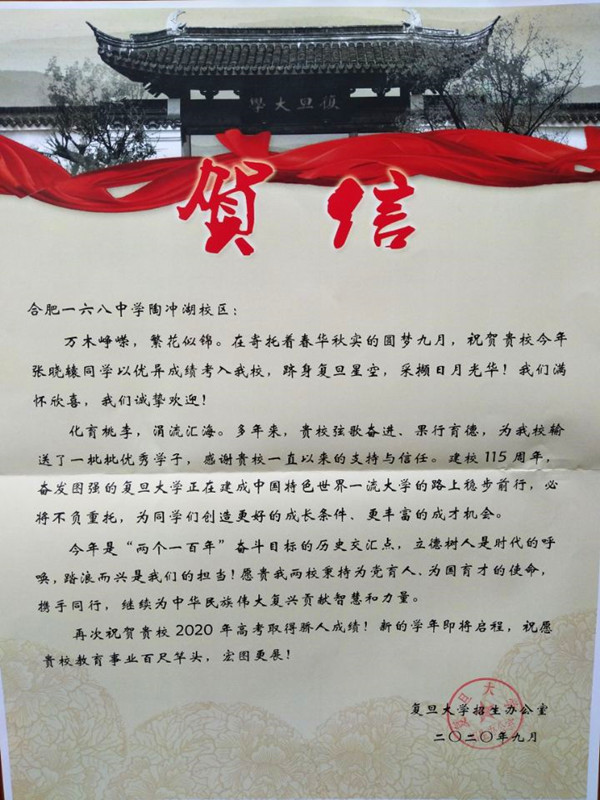 學大旦復
贺信
合肥一六八中学陶冲湖校区：
万木峥嵘，繁花似锦。在寄托着春华秋实的圆梦九月，祝贺贵校今年
张晓榛同学以优异成绩考入我校，跻身复旦星空，采撷日月光华！我们满
怀欣喜，我们诚挚欢迎！
化育桃李，涓流汇海。多年来，贵校弦歌奋进、果行育德，为我校输
送了一批批优秀学子，感谢贵校一直以来的支持与信任。建校 115 周年，
奋发图强的复旦大学正在建成中国特色世界一流大学的路上稳步前行，必
将不负重托，为同学们创造更好的成长条件、更丰富的成才机会。
今年是“两个一百年”奋斗目标的历史交汇点，立德树人是时代的呼
唤，踏浪而兴是我们的担当！愿贵我两校秉持为党育人、为国育才的使命，
携手同行，继续为中华民族伟大复兴贡献智慧和力量。
再次祝贺贵校 2020 年高考取得骄人成绩！新的学年即将启程，祝愿
贵校教育事业百尺竿头，宏图更展！
复旦大学招生办公室
二〇二〇年九月